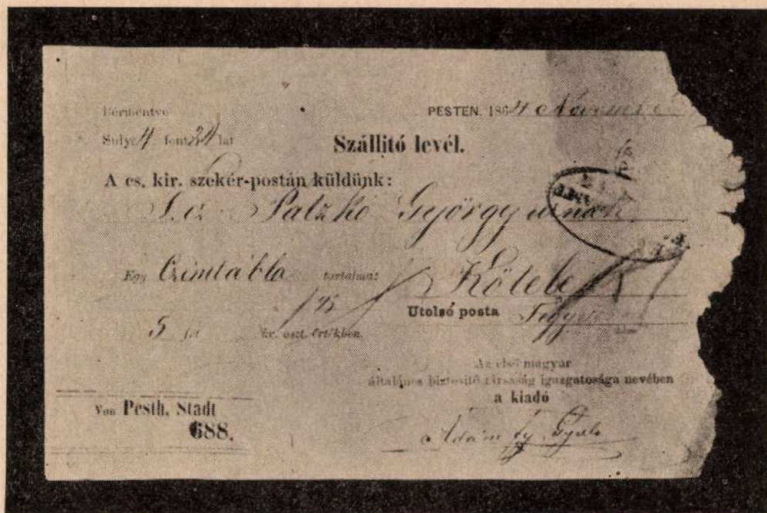 Bérmentve PESTEN, 1864 Novemb
Suly: 4 font 24 lat
Szállitó levél.
A cs. kir. szekér-postán küldünk:
Patzkó György urnak
Egy Czimtábla tartalma: Kötelek
5 kr. oszt. értékben. Utolsó posta
Az első magyar
általános biztositó társaság igazgatósága nevében
a kiadó
Von Pesth, Stadt
688.
Ádám Gyula